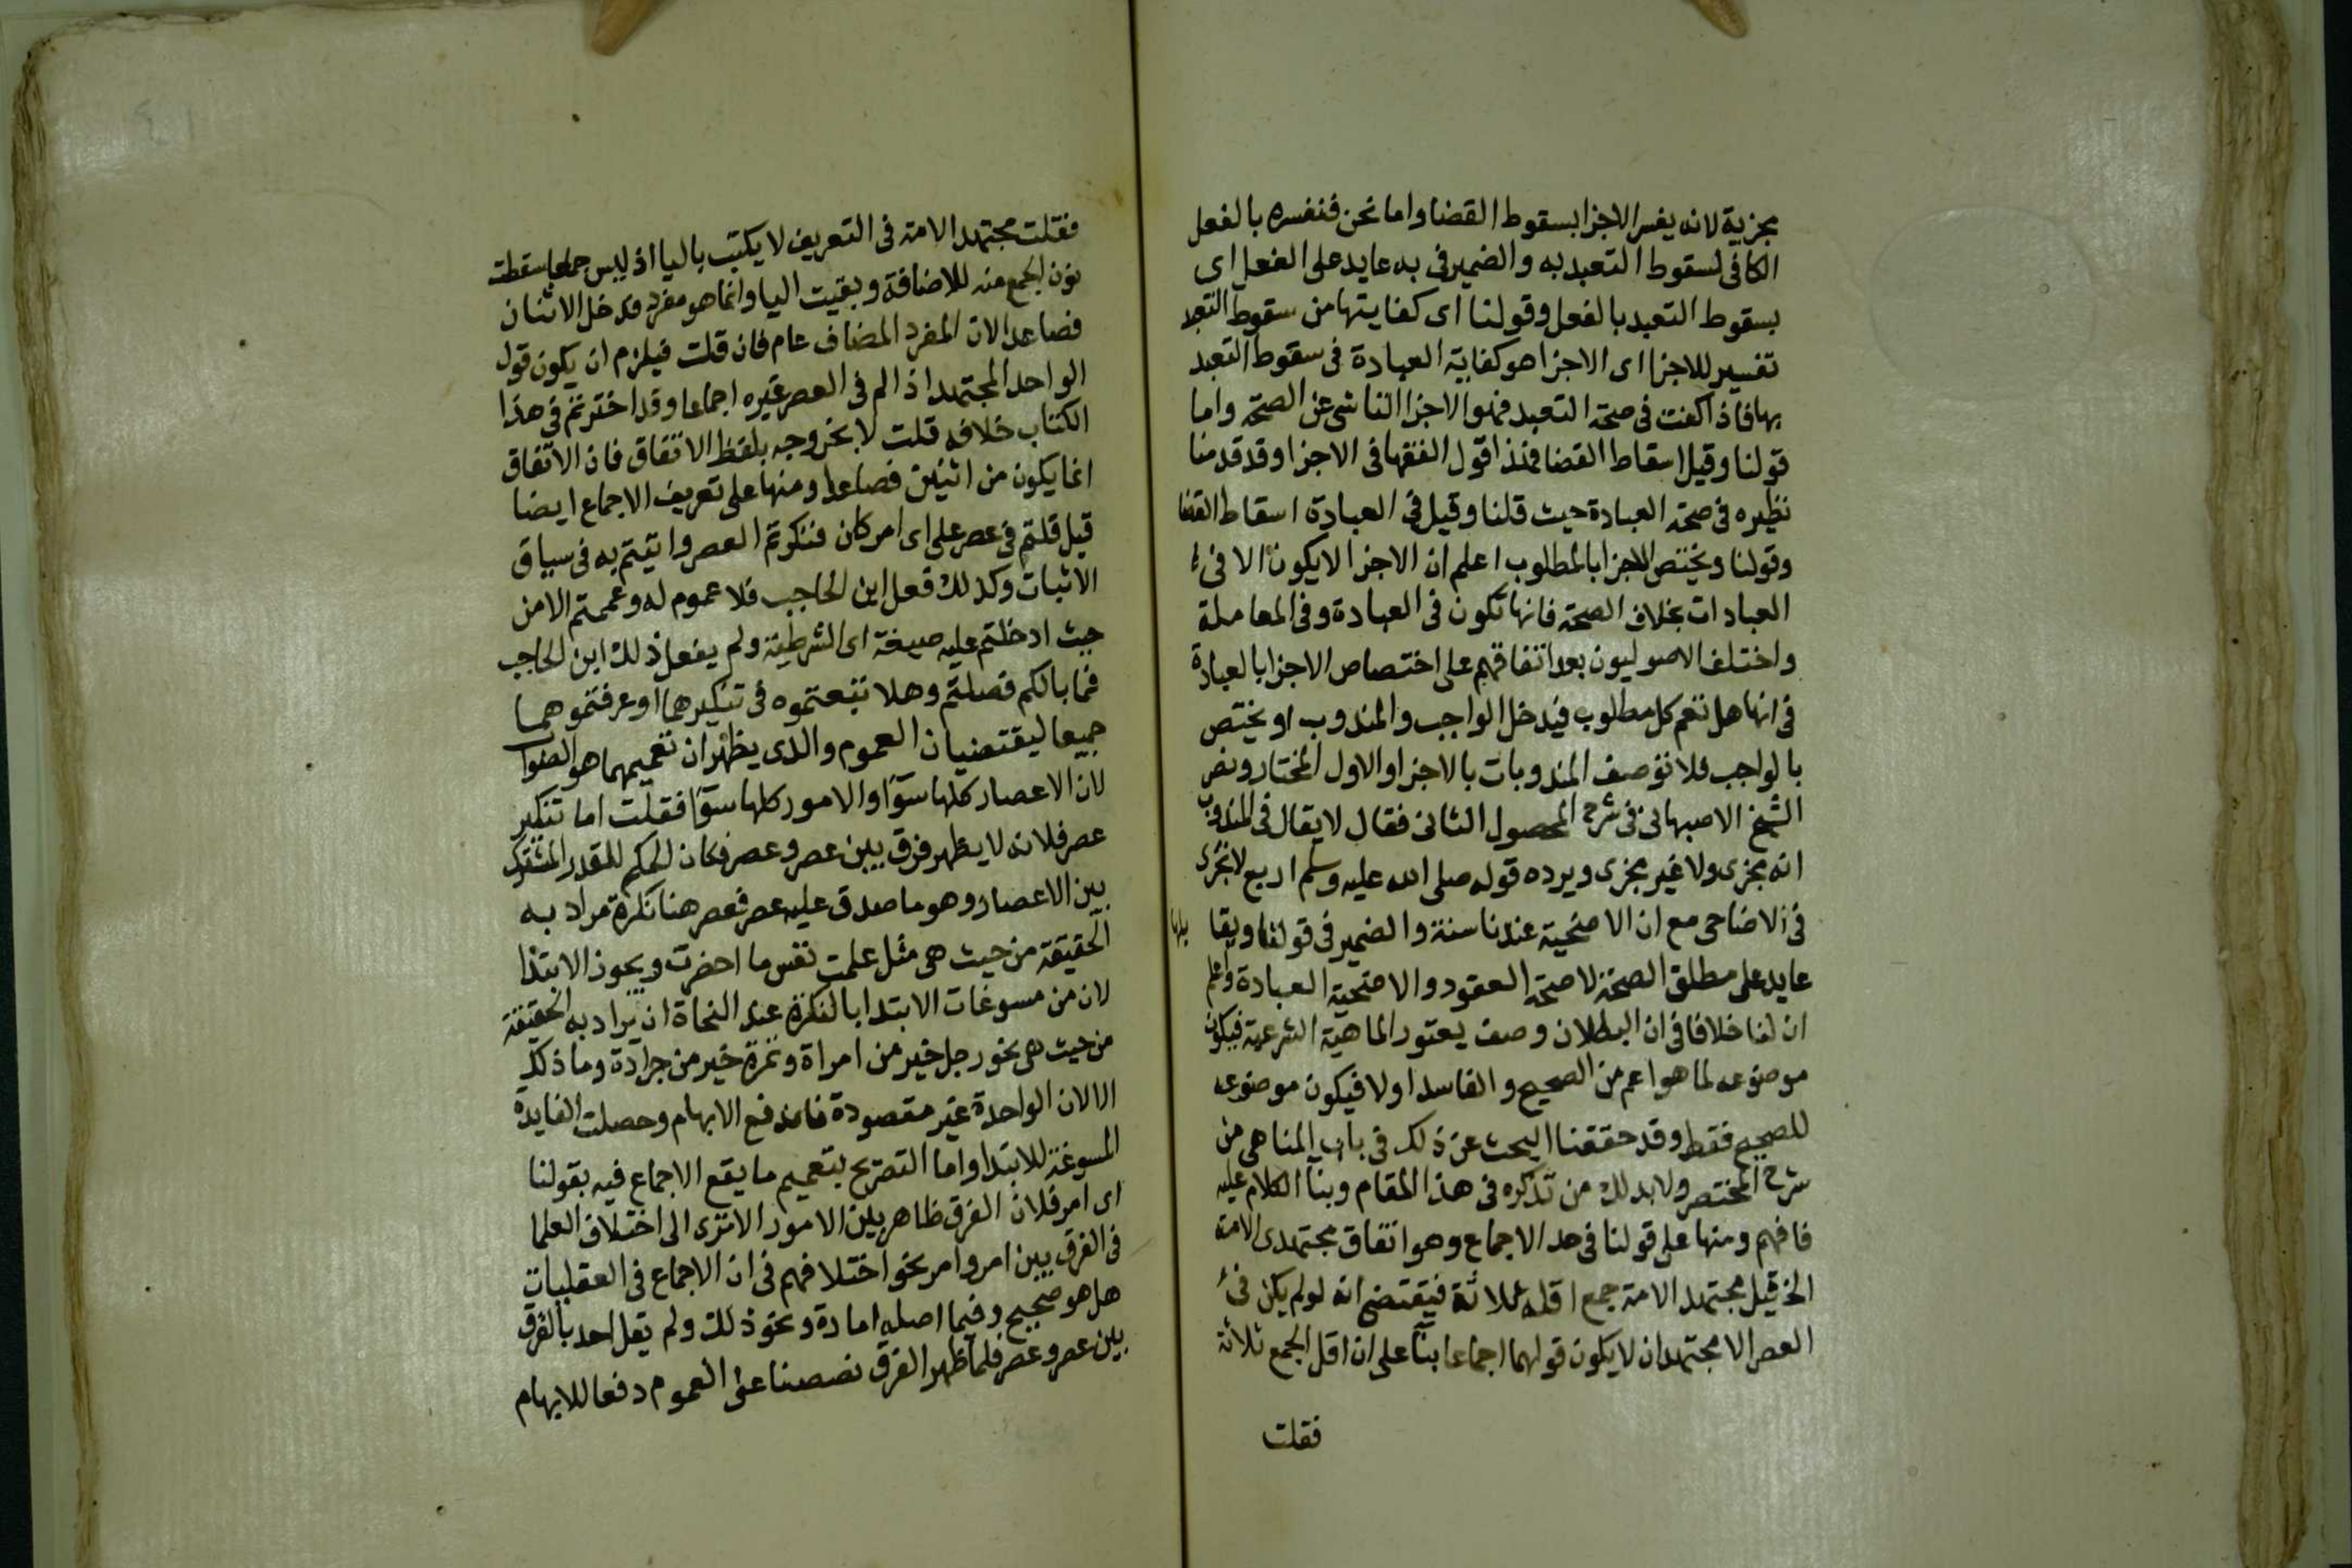 مجزية لانه يفسر الاجزا بسقوط القضا واما نحن فنفسره بالفعل
الكافى لسقوط التعبد به والضمير فى به عايد على الفعل اى
بسقوط التعبد بالفعل وقولنا اى كفايتها من سقوط التعبد
تفسير للاجزا اى الاجزا هو كفاية العبادة فى سقوط التعبد
بها فاذا كفت فى صحة التعبد فهو الاجزا الناشى عن الصحة واما
قولنا وقيل اسقاط القضا فهذا قول الفقها فى الاجزا وقد قدمنا
نظيره فى صحة العبادة حيث قلنا وقيل فى العبادة اسقاط القضا
وقولنا ويختص الاجزا بالمطلوب اعلم ان الاجزا لا يكون الا فى
العبادات بخلاف الصحة فانها تكون فى العبادة وفى المعاملة
واختلف الاصوليون بعد اتفاقهم على اختصاص الاجزا بالعبادة
فى انها هل تعم كل مطلوب فيدخل الواجب والمندوب او يختص
بالواجب فلا توصف المندوبات بالاجزا والاول المختار ونص
الشيخ الاصبهانى فى شرح المحصول الثانى فقال لا يقال فى المندوب
انه مجزى ولا غير مجزى ويرده قوله صلى الله عليه وسلم اربع لا تجزى
فى الاضاحى مع ان الاضحية عندنا سنة والضمير فى قولنا ويقا بلها
عايد على مطلق الصحة لا صحة العقود والاضحية العبادة واعلم
ان لنا خلافا فى ان البطلان وصف يعتور الماهية الشرعية فيكون
موضوعه لما هو اعم من الصحيح والفاسد اولا فيكون موضوعه
للصحيح فقط وقد حققنا البحث عن ذلك فى باب المناهى من
شرح المختصر ولا بد لك من تذكره فى هذا المقام وبنا الكلام عليه
فافهم ومنها على قولنا فى حد الاجماع وهو اتفاق مجتهدى الامة
الخ قيل مجتهد الامة جمع اقله ثلاثة فيقتضى انه لو لم يكن فى
العصر الا مجتهدان لا يكون قولهما اجماعا بنآ على ان اقل الجمع ثلاثة
فقلت
فقلت مجتهد الامة فى التعريف لا يكتب باليا اذ ليس جمعا سقطت
نون الجمع منه للاضافة وبقيت اليا وانما هو مفرد فدخل الاثنان
فصاعدا لان المفرد المضاف عام فان قلت فيلزم ان يكون قول
الواحد المجتهد اذا لم فى العصر غيره اجماعا وقد اخترتم فى هذا
الكتاب خلافه قلت لا بخروجه بلفظ الاتفاق فان الاتفاق
انما يكون من اثنين فصاعدا ومنها على تعريف الاجماع ايضا
قيل قلتم فى عصر على اى امر كان فنكرتم العصر واتيتم به فى سياق
الاثبات وكذلك فعل ابن الحاجب فلا عموم له وعممتم الامن
حيث ادخلتم عليه صيغة اى الشرطية ولم يفعل ذلك ابن الحاجب
فما بالكم فصلتم وهلا تبعتموه فى تنكيرهما او عرفتموهما
جميعا ليقتضيان العموم والذى يظهر ان تعميمهما هو الصواب
لان الاعصار كلها سوآ والامور كلها سوآ فقلت اما تنكير
عصر فلانه لا يظهر فرق بين عصر وعصر فكان الحكم للقدر المشترك
بين الاعصار وهو ما صدق عليه عصر فعصر هنا نكرة مراد به
الحقيقة من حيث هى مثل علمت نفس ما احضرت ويجوز الابتدا
لان من مسوغات الابتدا بالنكرة عند النحاة ان يراد به الحقيقة
من حيث هى نحو رجل خير من امراة وتمرة خير من جرادة وما ذكك
الا لان الواحدة غير مقصودة فاندفع الابهام وحصلت الفايدة
المسوغة للابتدا واما التصريح بتعميم ما يقع الاجماع فيه بقولنا
اى امر فلان الفرق ظاهر بين الامور الا ترى الى اختلاف العلما
فى الفرق بين امر وامر نحو اختلافهم فى ان الاجماع فى العقليات
هل هو صحيح وفيما اصله امارة ونحو ذلك ولم يقل احد بالفرق
بين عصر وعصر فلما ظهر الفرق نصصنا على العموم دفعا للابهام